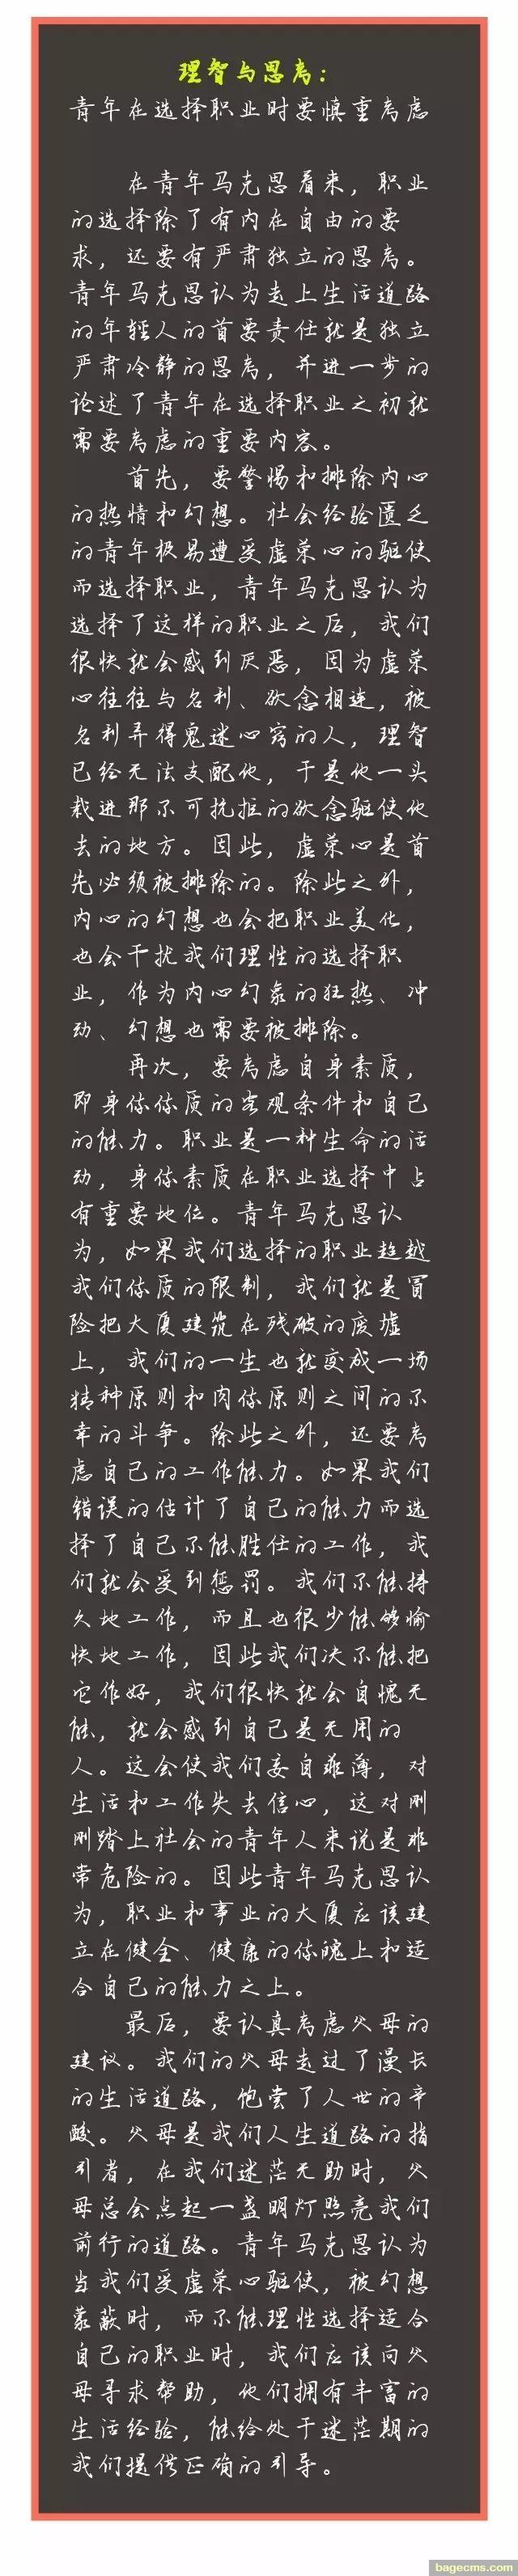 理智与思考：
青年在选择职业时要慎重考虑
在青年马克思看来，职业
的选择除了有内在自由的要
求，还要有严肃独立的思考。
青年马克思认为走上生活道路
的年轻人的首要责任就是独立
严肃冷静的思考，并进一步的
论述了青年在选择职业之初就
需要考虑的重要内容。
首先，要警惕和排除内心
的热情和幻想。社会经验匮乏
的青年极易遭受虚荣心的驱使
而选择职业，青年马克思认为
选择了这样的职业之后，我们
很快就会感到厌恶，因为虚荣
心往往与名利、欲念相连，被
名利弄得鬼迷心窍的人，理智
已经无法支配他，于是他一头
栽进那不可抗拒的欲念驱使他
去的地方。因此，虚荣心是首
先必须被排除的。除此之外，
内心的幻想也会把职业美化，
也会干扰我们理性的选择职
业，作为内心幻象的狂热、冲
动、幻想也需要被排除。
再次，要考虑自身素质，
即身体体质的客观条件和自己
的能力。职业是一种生命的活
动，身体素质在职业选择中占
有重要地位。青年马克思认
为，如果我们选择的职业超越
我们体质的限制，我们就是冒
险把大厦建筑在残破的废墟
上，我们的一生也就变成一场
精神原则和肉体原则之间的不
幸的斗争。除此之外，还要考
虑自己的工作能力。如果我们
错误的估计了自己的能力而选
择了自己不能胜任的工作，我
们就会受到惩罚。我们不能持
久地工作，而且也很少能够愉
快地工作，因此我们决不能把
它作好，我们很快就会自愧无
能，就会感到自己是无用的
人。这会使我们妄自菲薄，对
生活和工作失去信心，这对刚
刚踏上社会的青年人来说是非
常危险的。因此青年马克思认
为，职业和事业的大厦应该建
立在健全、健康的体魄上和适
合自己的能力之上。
最后，要认真考虑父母的
建议。我们的父母走过了漫长
的生活道路，饱尝了人世的辛
酸。父母是我们人生道路的指
引者，在我们迷茫无助时，父
母总会点起一盏明灯照亮我们
前行的道路。青年马克思认为
当我们受虚荣心驱使，被幻想
蒙蔽时，而不能理性选择适合
自己的职业时，我们应该向父
母寻求帮助，他们拥有丰富的
生活经验，能给处于迷茫期的
我们提供正确的引导。
bagecms.com